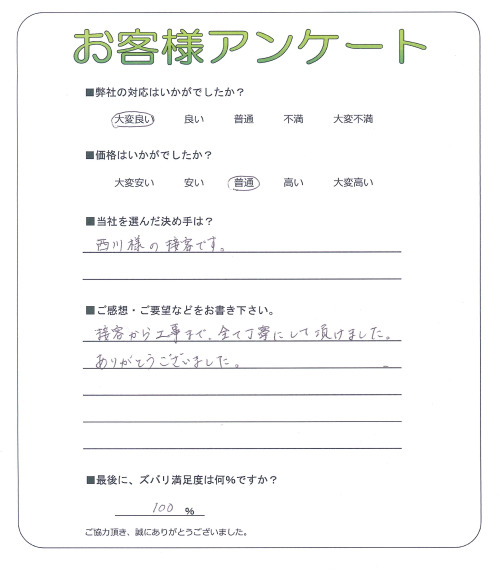 お客様アンケート
■弊社の対応はいかがでしたか？
大変良い 良い 普通 不満 大変不満
■価格はいかがでしたか？
大変安い 安い 普通 高い 大変高い
■当社を選んだ決め手は？
西川様の接客です。
■ご感想・ご要望などをお書き下さい。
接客から工事まで、全て丁寧にして頂けました。
ありがとうございました。
■最後に、ズバリ満足度は何%ですか？
100 %
ご協力頂き、誠にありがとうございました。